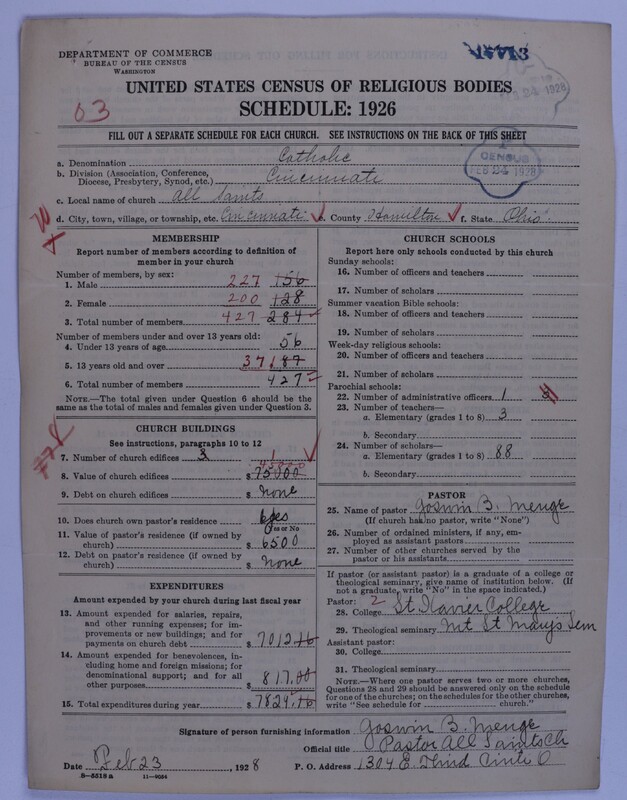 DEPARTMENT OF COMMERCE
BUREAU OF THE CENSUS
WASHINGTON
UNITED STATES CENSUS OF RELIGIOUS BODIES
SCHEDULE: 1926
03
FEB 24 1928
FILL OUT A SEPARATE SCHEDULE FOR EACH CHURCH. SEE INSTRUCTIONS ON THE BACK OF THIS SHEET
CENSUS
FEB 24 1928
a. Denomination Catholic
b. Division (Association, Conference, Diocese, Presbytery, Synod, etc.) Cincinnati
c. Local name of church All Saints
d. City, town, village, or township, etc. Cincinnati e. County Hamilton f. State Ohio
MEMBERSHIP
Report number of members according to definition of
member in your church
Number of members, by sex:
1. Male 227 156
2. Female 200 128
3. Total number of members 427 284
Number of members under and over 13 years old:
4. Under 13 years of age 56
5. 13 years old and over 371 87
6. Total number of members 427
NOTE.—The total given under Question 6 should be
same as the total of males and females given under Question 3.
CHURCH BUILDINGS
See instructions, paragraphs 10 to 12
7. Number of church edifices 3 1
8. Value of church edifices $ 75000
9. Debt on church edifices $ None
10. Does church own pastor's residence yes
Yes or No
11. Value of pastor's residence (if owned by
church) $ 6500
12. Debt on pastor's residence (if owned by
church) $ None
EXPENDITURES
Amount expended by your church during last fiscal year
13. Amount expended for salaries, repairs,
and other running expenses; for im-
provements or new buildings; and for
payments on church debt $ 7012.16
14. Amount expended for benevolences, in-
cluding home and foreign missions; for
denominational support; and for all
other purposes $ 817.00
15. Total expenditures during year $ 7829.16
CHURCH SCHOOLS
Report here only schools conducted by this church
Sunday schools:
16. Number of officers and teachers
17. Number of scholars
Summer vacation Bible schools:
18. Number of officers and teachers
19. Number of scholars
Week-day religious schools:
20. Number of officers and teachers
21. Number of scholars
Parochial schools:
22. Number of administrative officers 1
23. Number of teachers—
a. Elementary (grades 1 to 8) 3
b. Secondary
24. Number of scholars—
a. Elementary (grades 1 to 8) 88
b. Secondary
PASTOR
25. Name of pastor Goswin B. Menge
(If church has no pastor, write "None")
26. Number of ordained ministers, if any, em-
ployed as assistant pastors
27. Number of other churches served by the
pastor or his assistants
If pastor (or assistant pastor) is a graduate of a college or
theological seminary, give name of institution below. (If
not a graduate, write "No" in the space indicated.)
Pastor: 2
28. College St Xavier College
29. Theological seminary Mt St Marys Sem
Assistant pastor:
30. College
31. Theological seminary
NOTE.—Where one pastor serves two or more churches,
Questions 28 and 29 should be answered only on the schedule
for one of the churches; on the schedules for the other churches,
write "See schedule for church."
Signature of person furnishing information Goswin B. Menge
Official title Pastor All Saints Ch
Date Feb 23, 1928 P. O. Address 1304 E. Third Cinti O
8—5518 a 11—9024